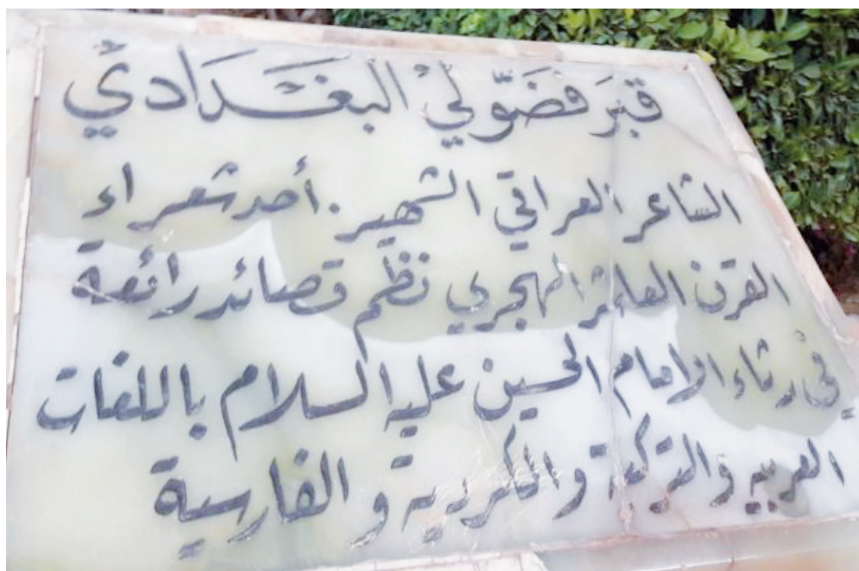 قبر فضولي البغدادي
الشاعر العراقي الشهير. أحد شعراء
القرن العاشر الهجري نظم قصائد رائعة
في رثاء الامام الحسين عليه السلام باللغات
العربيه والتركية والكردية والفارسية